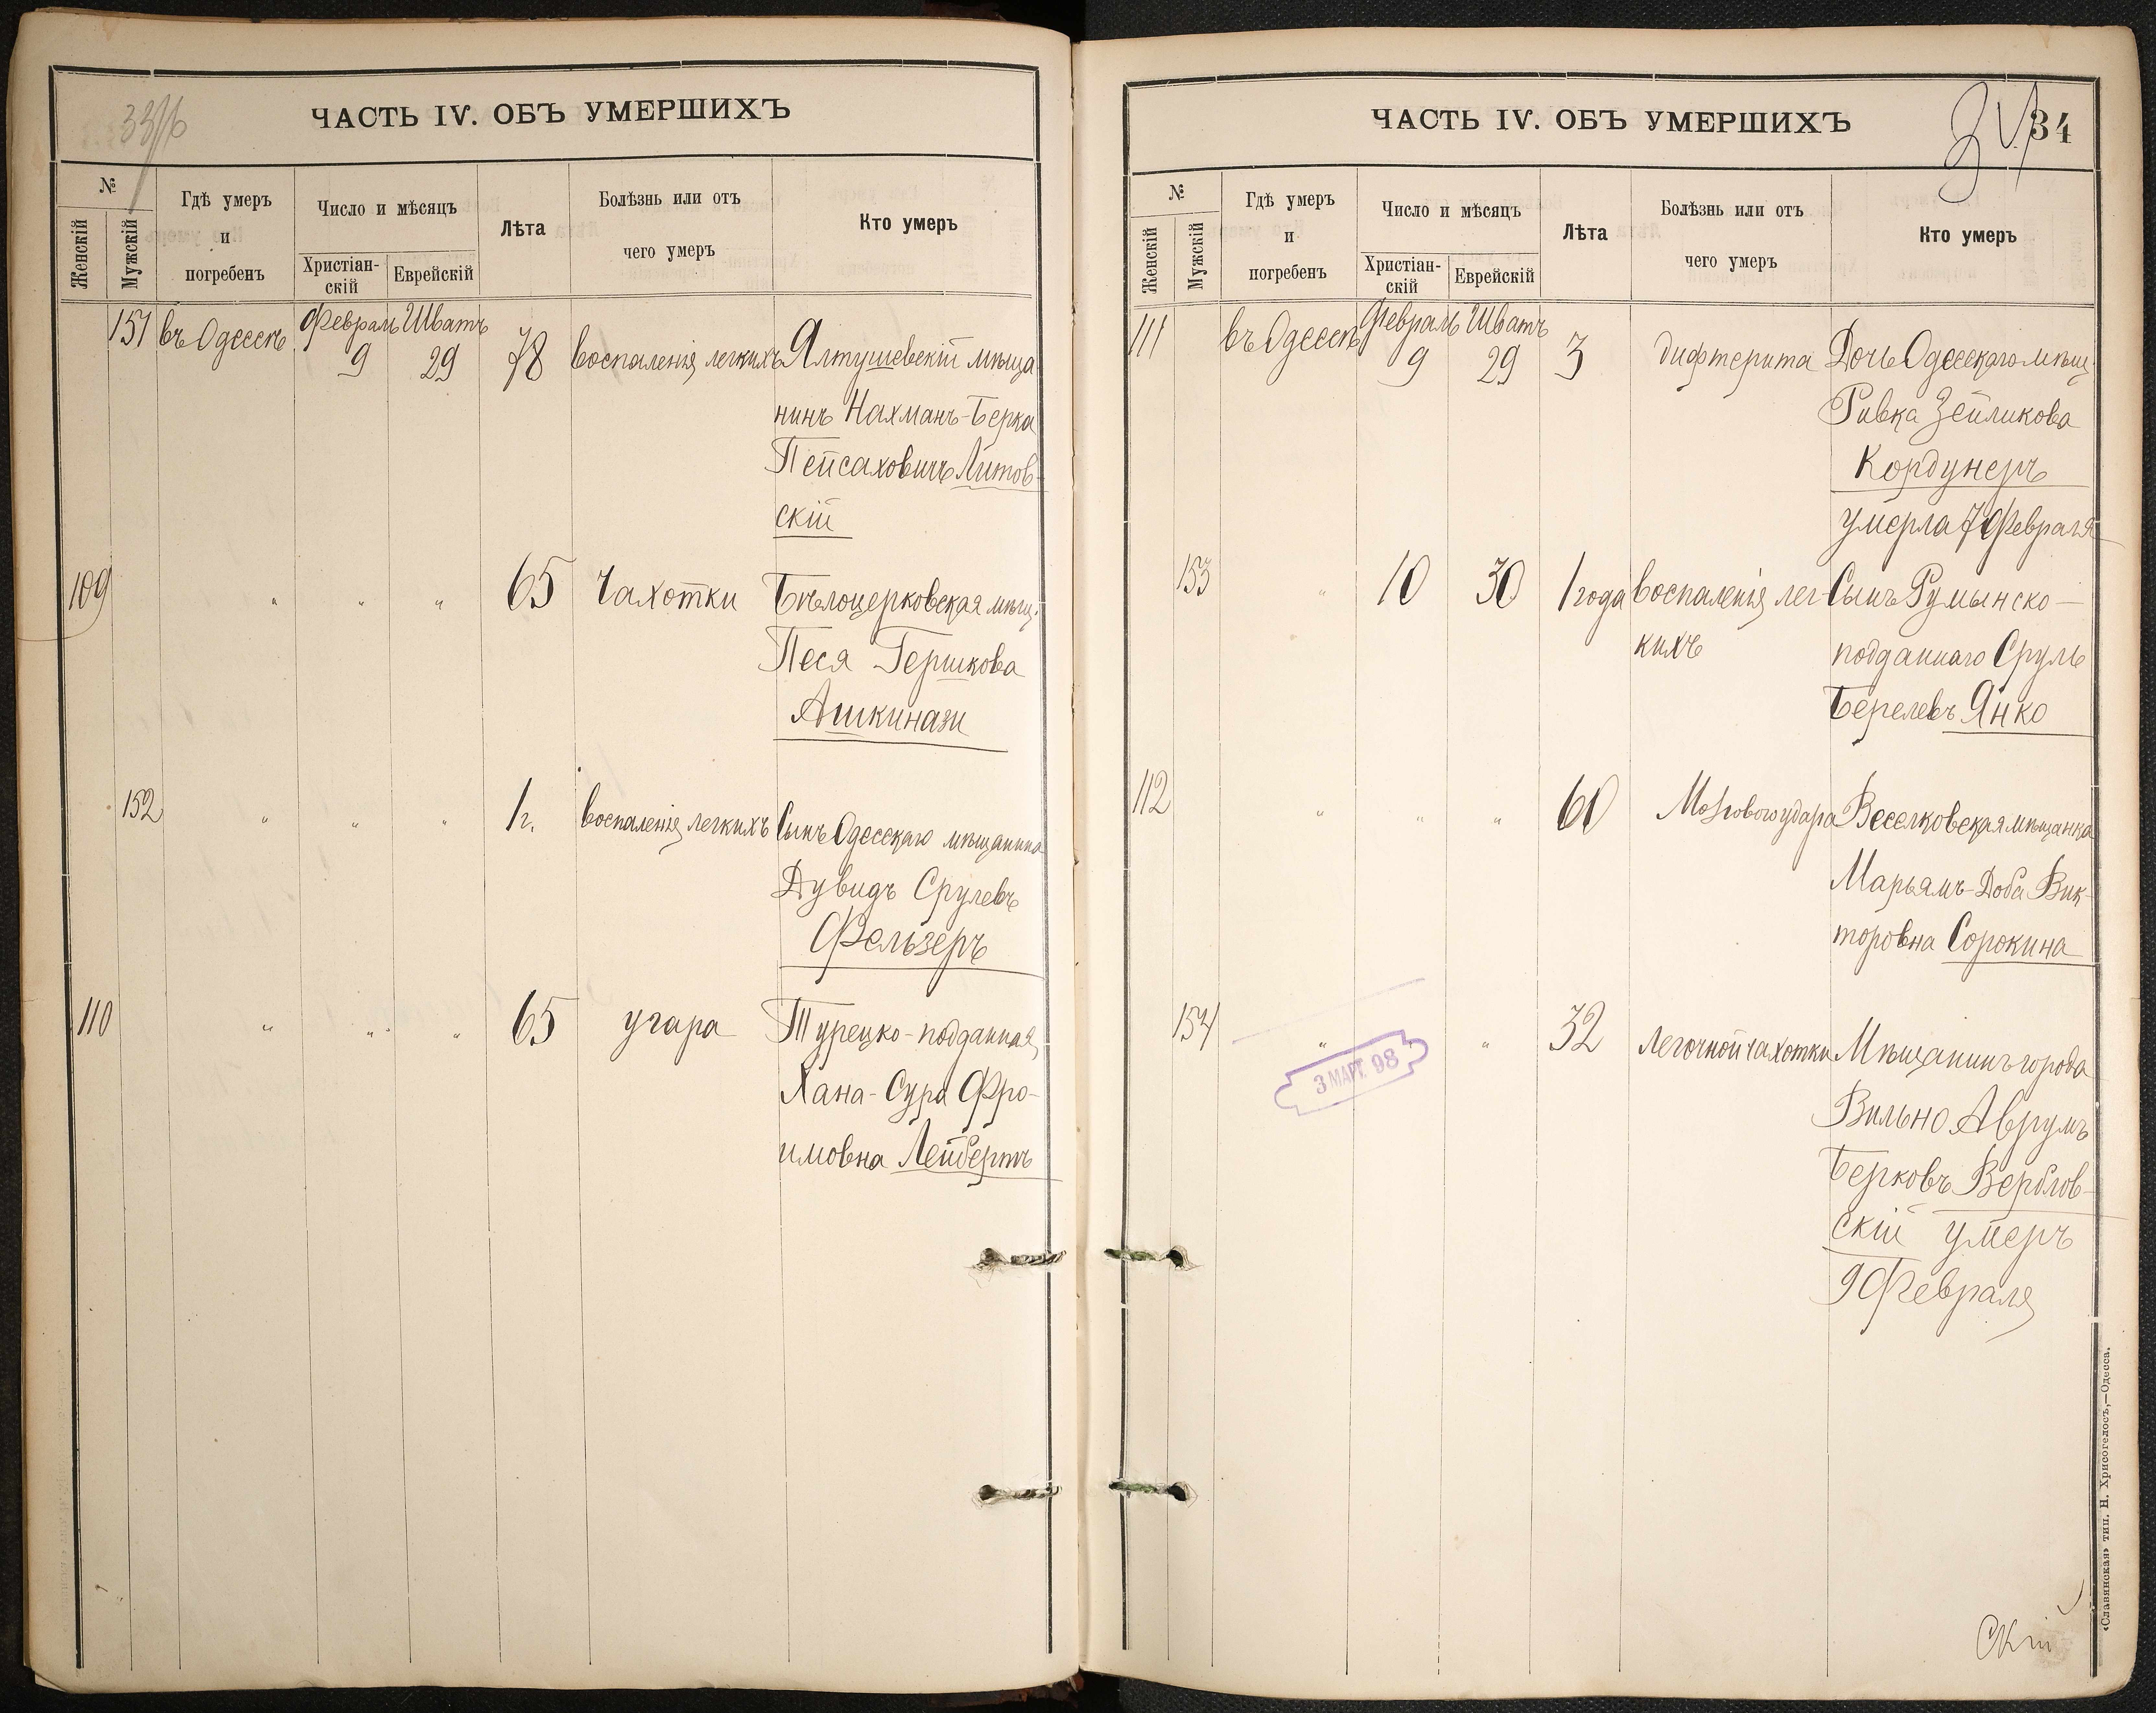 33/об
ЧАСТЬ IV. ОБЪ УМЕРШИХЪ
№
Женскій
Мужскій
Гдѣ умеръ
и
погребенъ
Число и мѣсяцъ
Христіан-
скій
Еврейскій
Лѣта
Болѣзнь или отъ
чего умеръ
Кто умеръ
151 въ Одессѣ Февраль Шватъ
9 29 78 воспаленія легкихъ Ялтушевскій мѣща
нинъ Нахманъ-Берка
Пейсаховичъ Литов-
скій
109 " " " 65 Чахотки Бѣлоцерковская мѣщ.
Песя Гершкова
Ашкинази
152 " " " 1 г. воспаленія легкихъ Сынъ Одесскаго мѣщанина
Дувидъ Срулевъ
Фельзеръ
110 " " " 65 угара Турецко-подданная
Хана-Сура Фро-
имовна Лейбертъ
ЧАСТЬ IV. ОБЪ УМЕРШИХЪ
34
34
№
Женскій
Мужскій
Гдѣ умеръ
и
погребенъ
Число и мѣсяцъ
Христіан-
скій
Еврейскій
Лѣта
Болѣзнь или отъ
чего умеръ
Кто умеръ
111 въ Одессѣ Февраль Шватъ
9 29 3 дифтерита Дочь Одесскаго мѣщ.
Ривка Зейликова
Кордунеръ
умерла 7 Февраля
153 " 10 30 1 года воспаленія лег- Сынъ Румынско-
кихъ подданнаго Сруль
Берелевъ Янко
112 " " " 60 Мозгового удара Веселковская мѣщанка
Марьямъ-Доба Вик-
торовна Сорокина
154 " " " 32 Легочной чахотки Мѣщанинъ города
Вильно Аврумъ
Берковъ Верблов-
скій умеръ
9 Февраля
3 МАРТ. 98
скій
«Славянская» тип. Н. Хрисогелосъ,—Одесса.